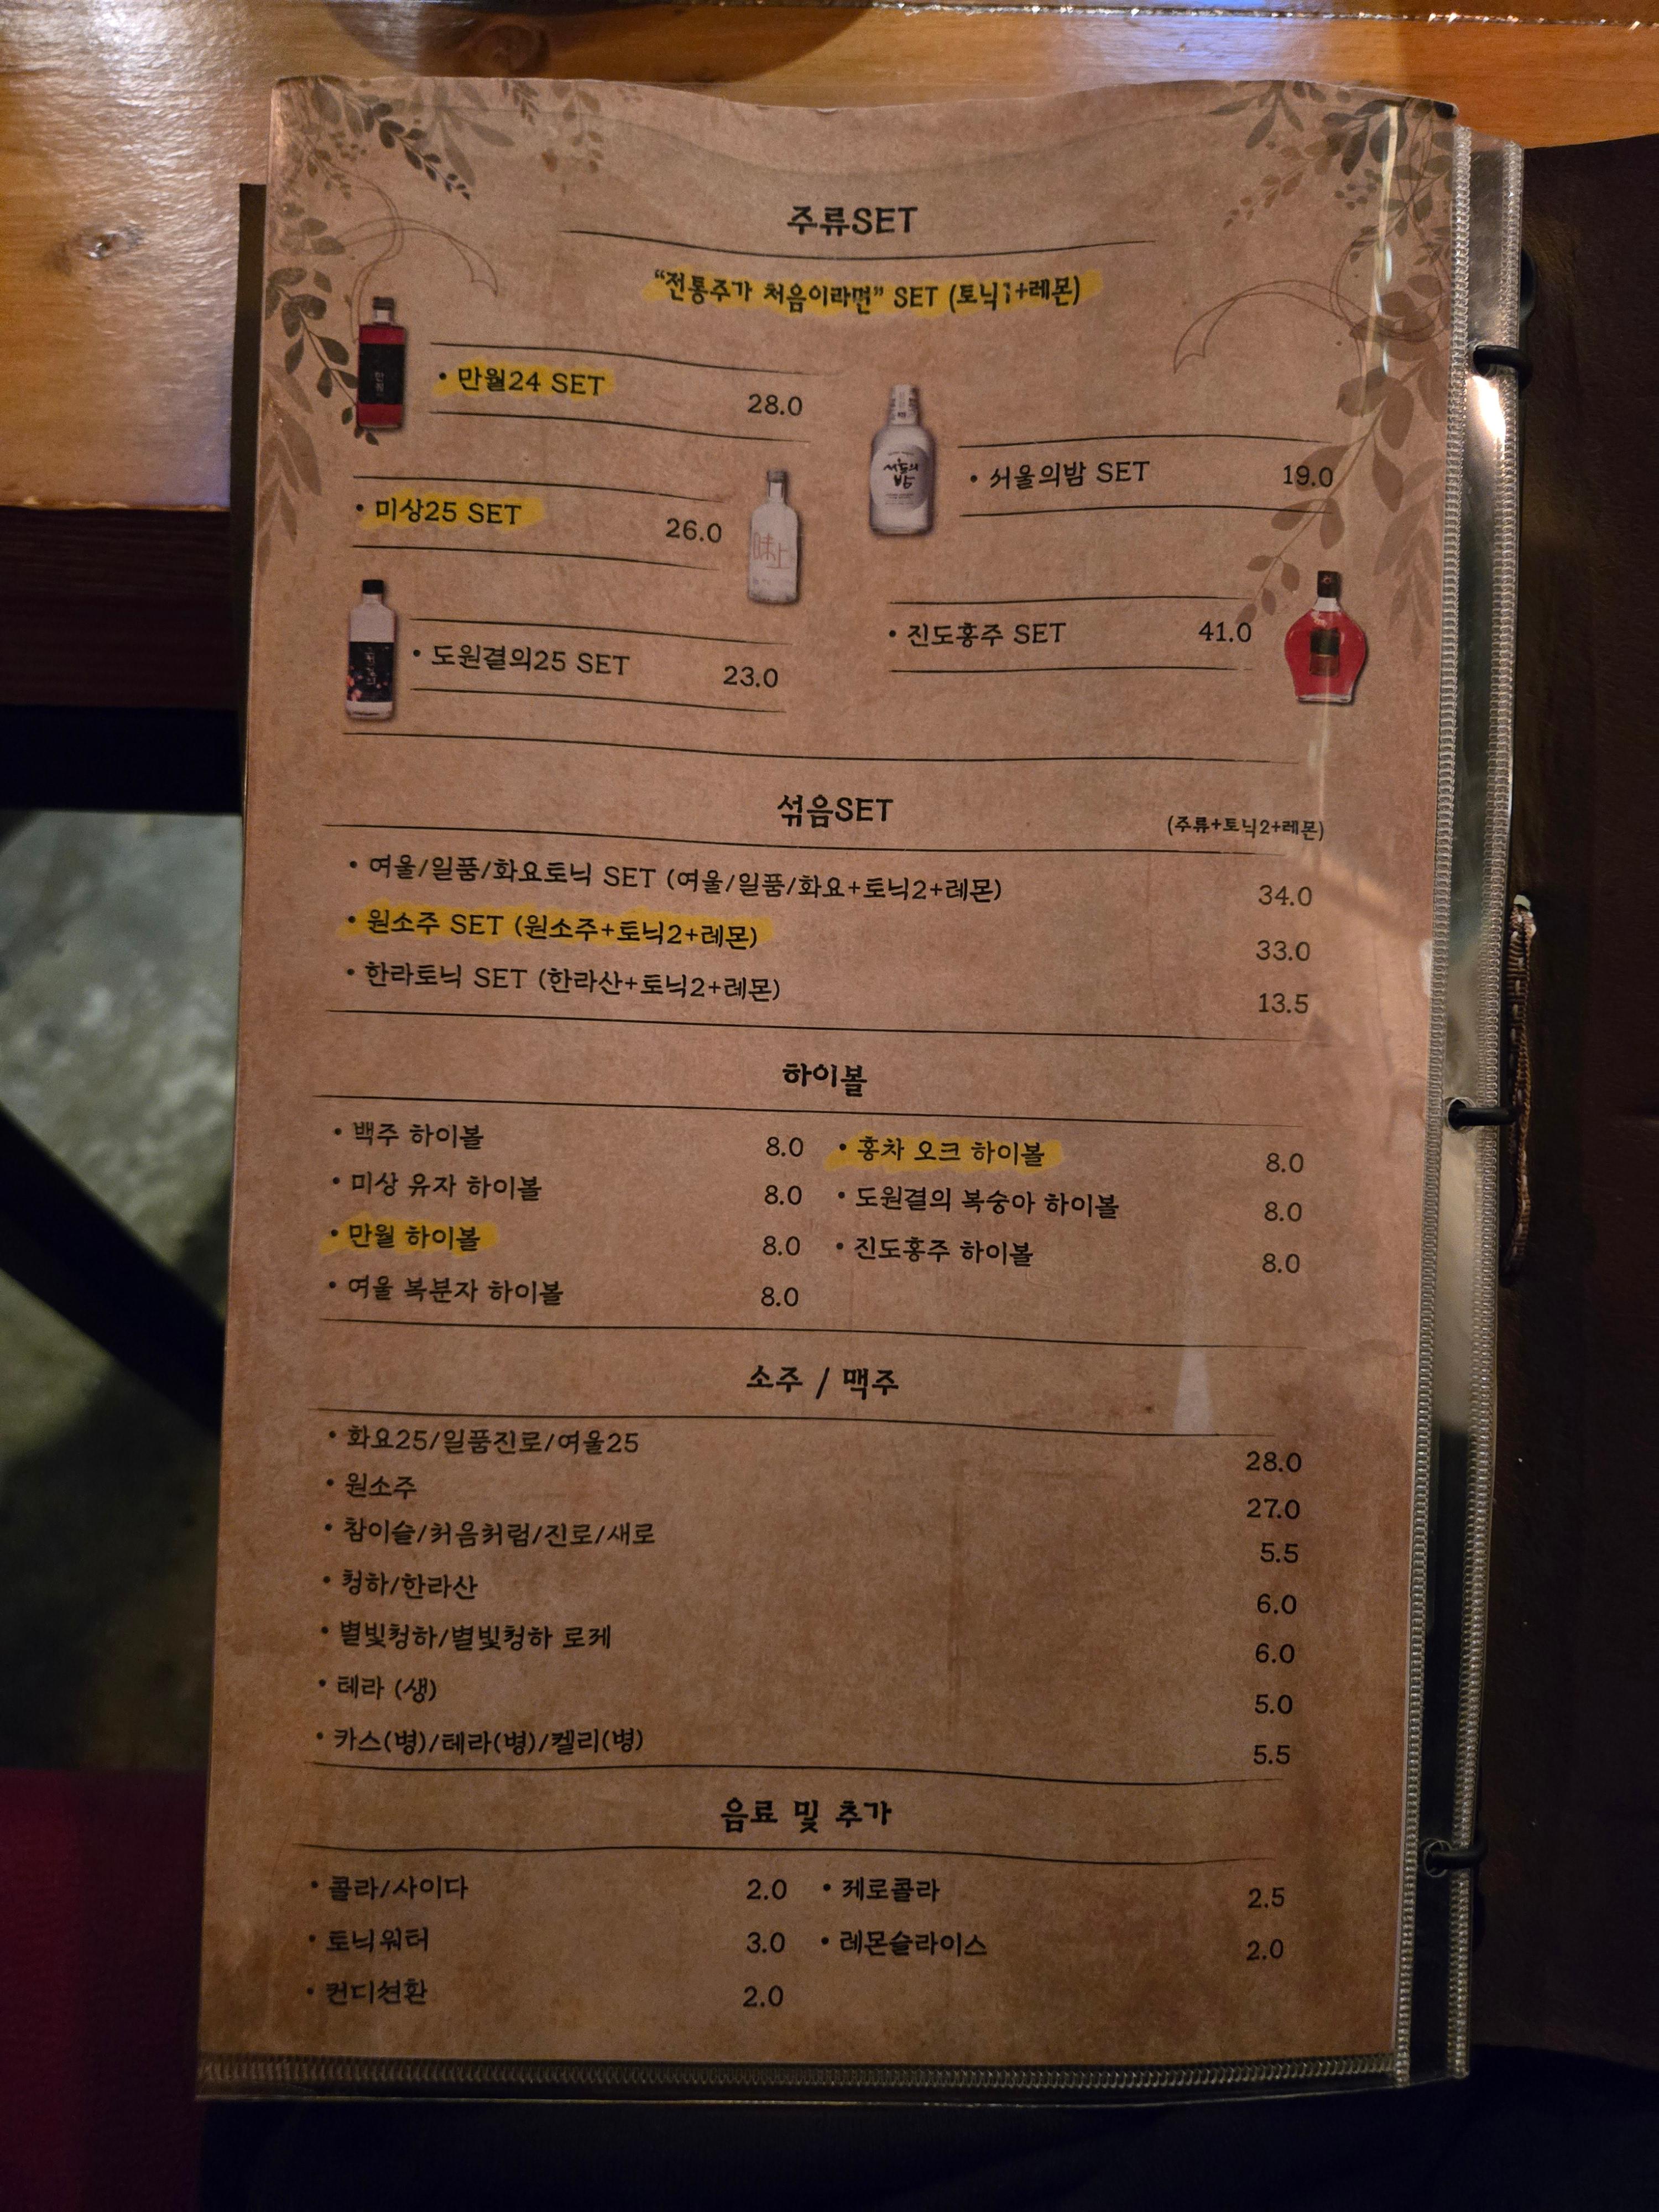 주류SET
“전통주가 처음이라면” SET (토닉1+레몬)
• 만월24 SET 28.0
• 서울의밤 SET 19.0
• 미상25 SET 26.0
味上
서울의
밤
• 진도홍주 SET 41.0
• 도원결의25 SET 23.0
섞음SET
(주류+토닉2+레몬)
• 여울/일품/화요토닉 SET (여울/일품/화요+토닉2+레몬) 34.0
• 원소주 SET (원소주+토닉2+레몬) 33.0
• 한라토닉 SET (한라산+토닉2+레몬) 13.5
하이볼
• 백주 하이볼 8.0 • 홍차 오크 하이볼 8.0
• 미상 유자 하이볼 8.0 • 도원결의 복숭아 하이볼 8.0
• 만월 하이볼 8.0 • 진도홍주 하이볼 8.0
• 여울 복분자 하이볼 8.0
소주 / 맥주
• 화요25/일품진로/여울25 28.0
• 원소주 27.0
• 참이슬/처음처럼/진로/새로 5.5
• 청하/한라산 6.0
• 별빛청하/별빛청하 로제 6.0
• 테라 (생) 5.0
• 카스(병)/테라(병)/켈리(병) 5.5
음료 및 추가
• 콜라/사이다 2.0 • 제로콜라 2.5
• 토닉워터 3.0 • 레몬슬라이스 2.0
• 컨디션환 2.0